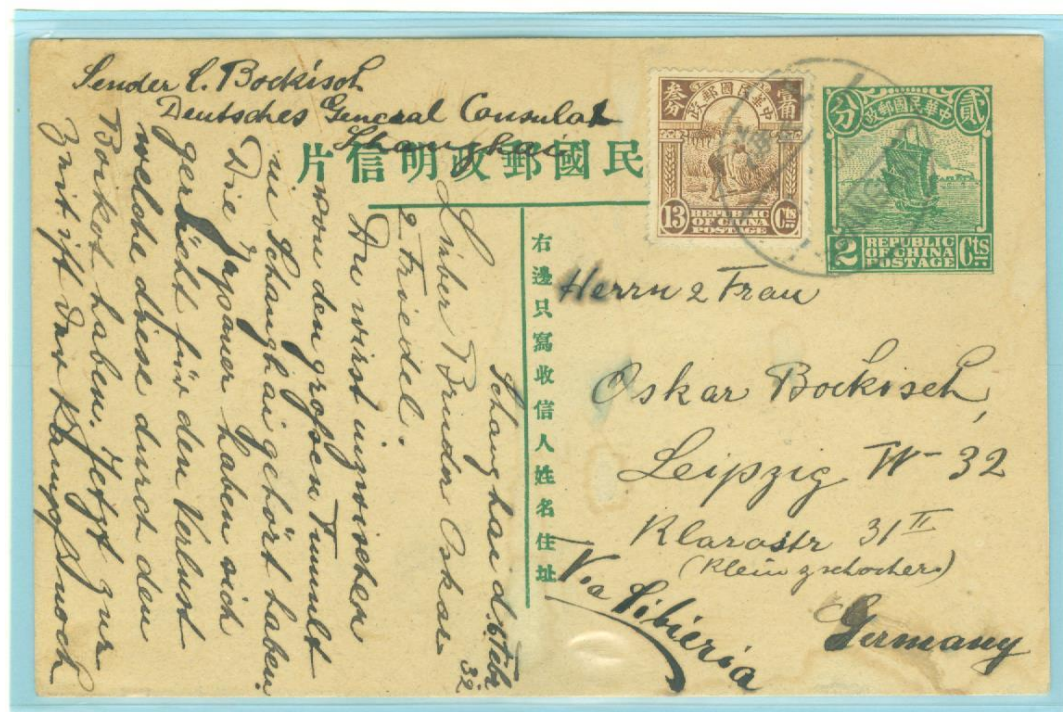 Sender C. Bockisch
Deutsches General Consulat
Shanghai
民國郵政明信片
中華民國郵政
叁分
13 Cts
REPUBLIC
OF CHINA
POSTAGE
中華民國郵政
貳分
2 Cts
REPUBLIC
OF CHINA
POSTAGE
右邊只寫收信人姓名住址
Herrn & Frau
Oskar Bockisch,
Leipzig W-32
Klarastr 31 II
(Kleinzschocher)
Germany
Via Sibieria
Schanghai d. 6. Febr 32.
Lieber Bruder Oskar
& Friedel.
Du wirst inzwischen
von den großen Tumult
in Schanghai gehört haben.
Die Japaner haben sich
gerächt für den Verlust
welche diese durch den
Boikot haben. Jetzt zur
Zeit ist der Kampf noch